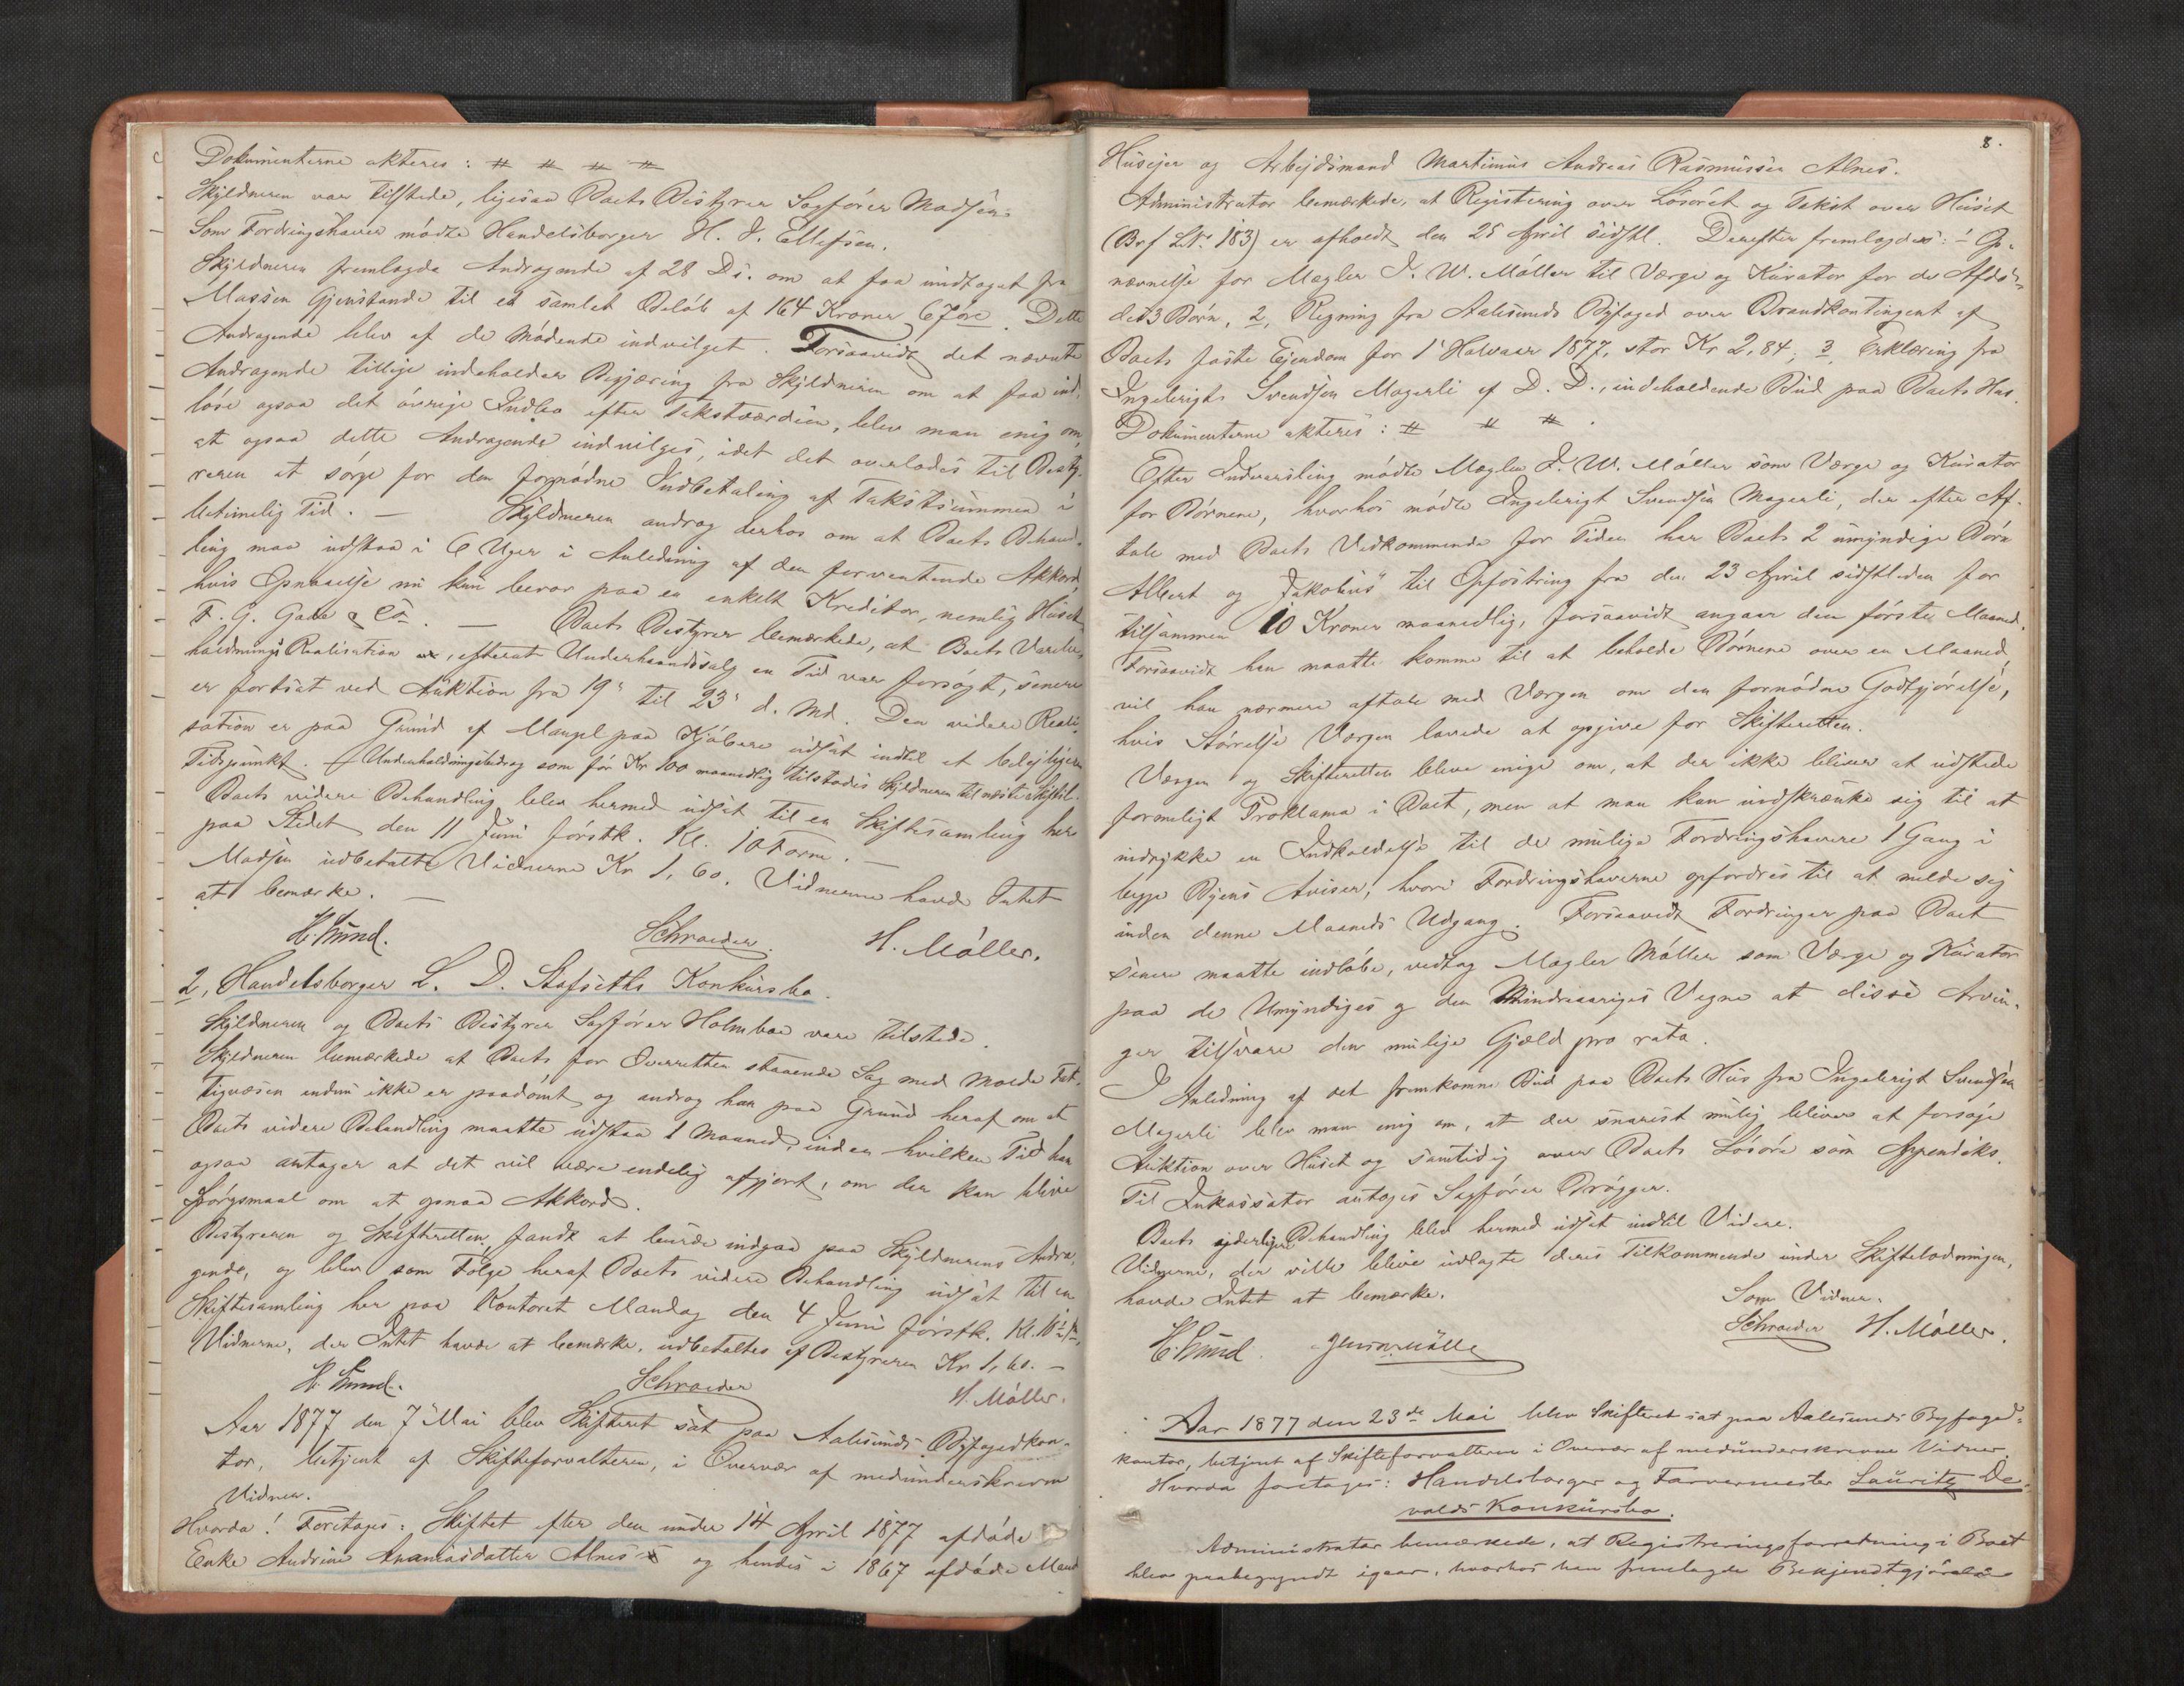 Dokumenterne akteres: # # # #
Skyldneren var tilstede, ligesaa Boets Bestyrer Sagfører Madsen.
Som Fordringshaver mødte Handelsborger H. J. Ellefsen.
Skyldneren fremlagde Andragende af 28 Ds. om at faa undtaget fra
Massen Gjenstande til et samlet Beløb af 164 Kroner 67 øre. Dette
Andragende blev af de mødende indvilget. Forsaavidt det nævnte
Andragende tillige indeholder Begjæring fra Skyldneren om at faa ind-
løse ogsaa det øvrige Indbo efter Takstværdien, blev man enig om,
at ogsaa dette Andragende indvilges, idet det overlodes til Besty-
reren at sørge for den fornødne Indbetaling af Takstsummen i
betimelig Tid. — Skyldneren androg derhos om at Boets Behand-
ling maa udstaa i 6 Uger i Anledning af den forventende Akkord,
hvis Opnaaelse nu kun beror paa en enkelt Kreditor, nemlig Huset
F. G. Gade & Co. — Boets Bestyrer bemærkede, at Boets Varebe-
holdnings Realisation, efterat Underhaandssalg en Tid var forsøgt, senere
er fortsat ved Auktion fra 19' til 23' d. Md. Den videre Reali-
sation er paa Grund af Mangel paa Kjøbere udsat indtil et beleiligere
Tidspunkt. Underholdningsbidrag som før Kr 100 maanedlig tilstodes Skyldneren til næste Skiftesl.
Boets videre Behandling blev hermed udsat til en Skiftesamling her
paa Stedet den 11 Juni førstk. Kl. 10 Form. —
Madsen udbetalte Vidnerne Kr 1,60. Vidnerne havde Intet
at bemærke. —
H. Lund. Schroeder. H. Møller.
2, Handelsborger L. D. Stafseths Konkursbo.
Skyldneren og Boets Bestyrer Sagfører Holmboe vare tilstede.
Skyldneren bemærkede at Boets for Overretten staaende Sag med Molde Fat-
tigvæsen endnu ikke er paadømt og androg han paa Grund heraf om at
Boets videre Behandling maatte udstaa 1 Maaned, inden hvilken Tid han
ogsaa antager at det vil være endelig afgjort, om der kan blive
Spørgsmaal om at opnaa Akkord.
Bestyreren og Skifteretten fandt at burde indgaa paa Skyldnerens Andra-
gende, og blev som Følge heraf Boets videre Behandling udsat til en
Skiftesamling her paa Kontoret Mandag den 4 Juni førstk. Kl. 10
Vidnerne, der Intet havde at bemærke, udbetaltes af Bestyreren Kr 1,60. —
H. Lund. Schroeder H. Møller.
Aar 1877 den 7' Mai blev Skifteret sat paa Aalesunds Byfogedkon-
tor, betjent af Skifteforvalteren, i Overvær af medunderskrevne
Vidner.
Hvorda! Foretoges: Skiftet efter den under 14 April 1877 afdøde
Enke Andrine Ananiasdatter Alnes og hendes i 1867 afdøde Mand
8.
Husejer og Arbejdsmand Martinus Andreas Rasmussen Alnes.
Administrator bemærkede, at Registering over Løsøret og Takst over Huset
(Brf L.Nr 183) er afholdt den 25 April sidstl. Derefter fremlagdes: 1 Op-
nævnelse for Mægler J. W. Møller til Værge og Kurator for de Afdø-
des 3 Børn, 2, Regning fra Aalesunds Byfoged over Brandkontingent af
Boets faste Ejendom for 1' Halvaar 1877, stor Kr 2,84; 3 Erklæring fra
Ingebrigt Svendsen Magerli af D. D., indeholdende Bud paa Boets Hus.
Dokumenterne akteres: # # #.
Efter Indvarsling mødte Mægler J. W. Møller som Værge og Kurator
for Børnene, hvorhos mødte Ingebrigt Svendsen Magerli, der efter Af-
tale med Boets Vedkommende for Tiden har Boets 2 umyndige Børn
Albert og Jakobus til Opfostring fra den 23 April sidstleden for
tilsammen 10 Kroner maanedlig, forsaavidt angaar den første Maaned.
Forsaavidt han maatte komme til at beholde Børnene over en Maaned,
vil han nærmere aftale med Værgen om den fornødne Godtgjørelse,
hvis Størrelse Værgen lovede at opgive for Skifteretten.
Værgen og Skifteretten bleve enige om, at der ikke bliver at udstede
formeligt Proklama i Boet, men at man kun indskrænke sig til at
indrykke en Indkaldelse til de mulige Fordringshavere 1 Gang i
begge Byens Aviser, hvori Fordringshaverne opfordres til at melde sig
inden denne Maaneds Udgang. Forsaavidt Fordringer paa Boet
senere maatte indløbe, vedtog Mægler Møller som Værge og Kurator
paa de Umyndiges og den Mindreaariges Vegne at disse Arvin-
ger tilsvare den mulige Gjæld pro rata.
I Anledning af det fremkomne Bud paa Boets Hus fra Ingebrigt Svendsen
Magerli blev man enig om, at der snarest mulig bliver at forsøge
Auktion over Huset og samtidig over Boets Løsøre som Appendiks.
Til Inkassator antoges Sagfører Brøgger.
Boets yderligere Behandling blev hermed udsat indtil Videre.
Vidnerne, der ville blive udlagte deres Tilkommende under Skifteslutningen,
havde Intet at bemærke.
Som Vidner.
H. Lund. Schroeder H. Møller.
Aar 1877 den 23de Mai blev Skifteret sat paa Aalesunds Byfoged-
kontor, betjent af Skifteforvalteren i Overvær af medunderskrevne Vidner.
Hvorda foretoges: Handelsborger og Farvermester Lauritz De-
volds Konkursbo.
Administrator bemærkede, at Registreringsforretning i Boet
blev paabegyndt igaar, hvorhos han fremlagde Bekjendtgjørelse